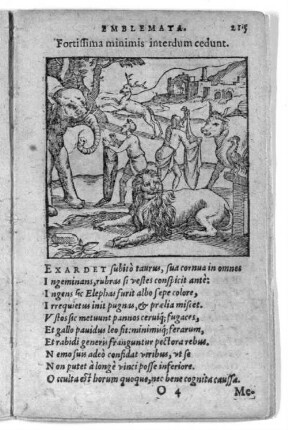 EMBLEMATA. 215
Fortissima minimis interdum cedunt.
EXARDET subitò taurus, sua cornua in omnes
Ingeminans, rubras si vestes conspicit antè:
Ingens sic Elephas furit albo sæpe colore,
Irrequietus init pugnas, & prælia miscet.
Vstos sic metuunt pannos ceruiq; fugaces,
Et gallo pauidus leo fit: minimisq; ferarum,
Et rabidi generis franguntur pectora rebus.
Nemo suis adeò confidat viribus, vt se
Non putet à longè vinci posse inferiore.
Occulta est horum quoque, nec bene cognita caussa.
O 4 Me-